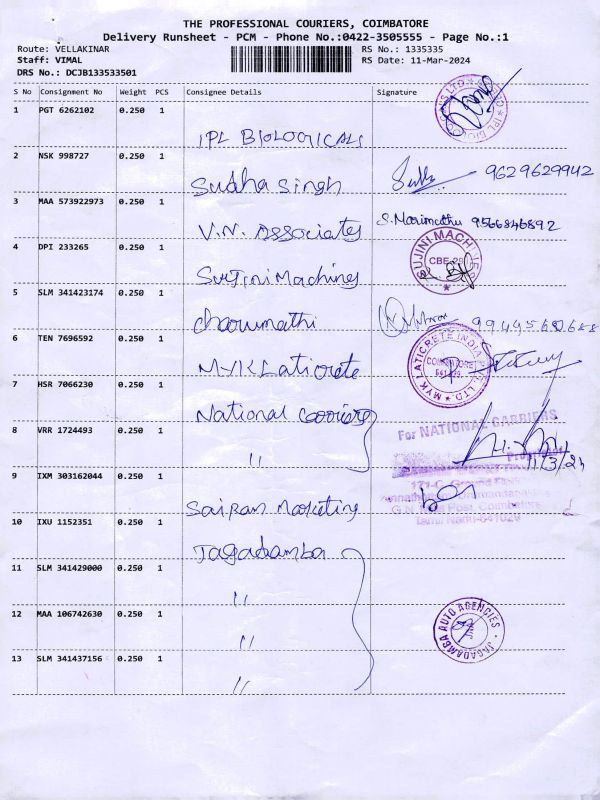 THE PROFESSIONAL COURIERS, COIMBATORE
Delivery Runsheet - PCM - Phone No.:0422-3505555 - Page No.:1
Route: VELLAKINAR RS No.: 1335335
Staff: VIMAL RS Date: 11-Mar-2024
DRS No.: DCJB133533501
S No Consignment No Weight PCS Consignee Details Signature
1 PGT 6262102 0.250 1
IPL BIOLOGICALS
2 NSK 998727 0.250 1
Sudha Singh 9629629942
3 MAA 573922973 0.250 1
V.N. Associates S. Marimuthu 9566846892
4 DPI 233265 0.250 1
Sujini Machines SUJINI MACHINES CBE-29
5 SLM 341423174 0.250 1
Charumathi
6 TEN 7696592 0.250 1
MYK Laticrete MYK LATICRETE INDIA
7 HSR 7066230 0.250 1
National Carriers For NATIONAL CARRIERS
8 VRR 1724493 0.250 1
" 11/3/24
9 IXM 303162044 0.250 1
Sairam Marketing
Tamil Nadu-641029
10 IXU 1152351 0.250 1
Jagadamba
11 SLM 341429000 0.250 1
"
12 MAA 106742630 0.250 1
" JAGADAMBA AUTO AGENCIES
13 SLM 341437156 0.250 1
"